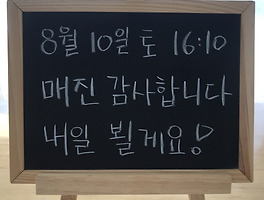 8월 10일 토 16:10
매진 감사합니다
내일 뵐게요!